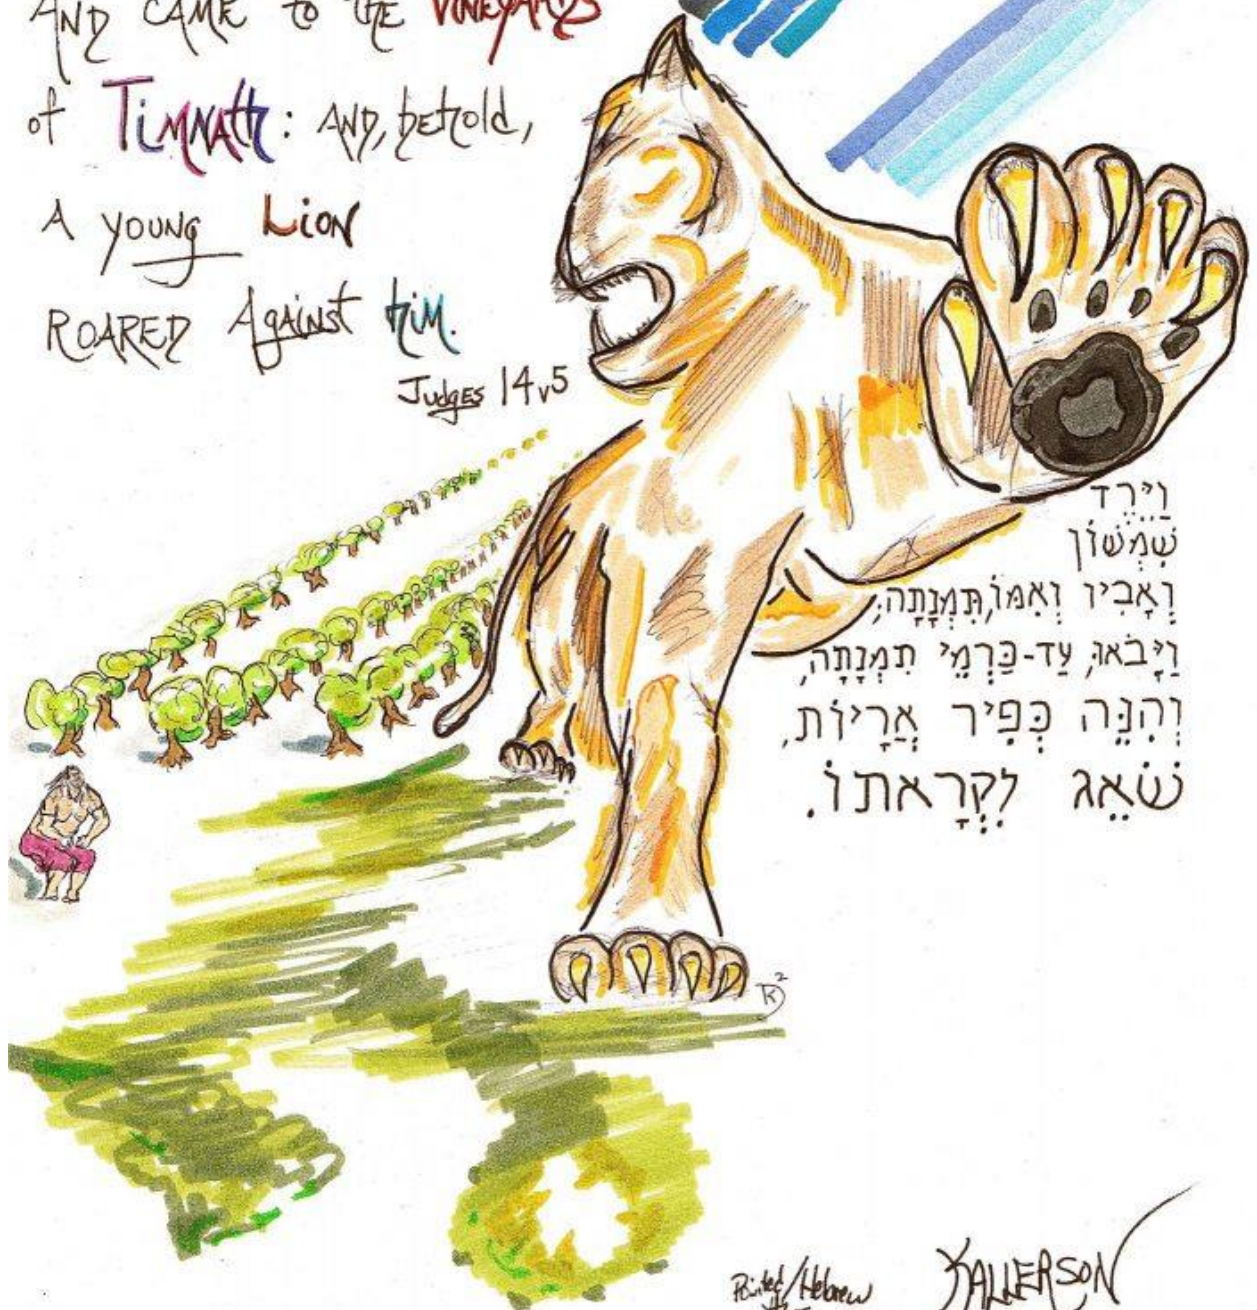 AND CAME to the VINEYARDS
of TIMNATH: AND, behold,
A YOUNG LION
ROARED AGAINST HIM.
Judges 14v5
וַיֵּרֶד
שִׁמְשׁוֹן
וְאָבִיו וְאִמּוֹ, תִּמְנָתָה;
וַיָּבֹאוּ, עַד-כַּרְמֵי תִמְנָתָה,
וְהִנֵּה כְּפִיר אֲרָיוֹת,
שֹׁאֵג לִקְרָאתוֹ.
Pointed/Hebrew
KALLERSON